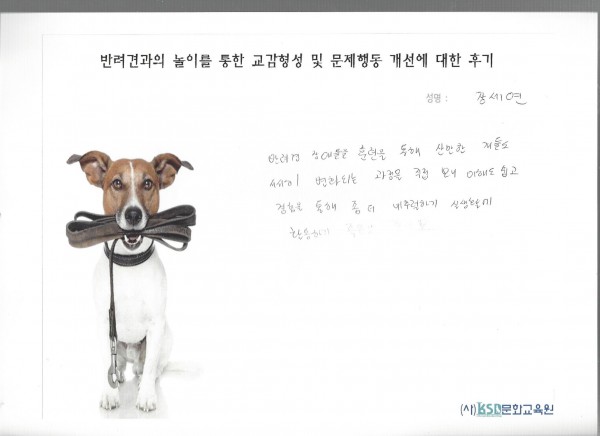 반려견과의 놀이를 통한 교감형성 및 문제행동 개선에 대한 후기
성명 : 장세연
반려견 장애물 훈련을 통해 산만한
변화되는 과정을 직접 보니 이해도 쉽고
경험을 통해 좀 더 실생활에
(사)KSD문화교육원